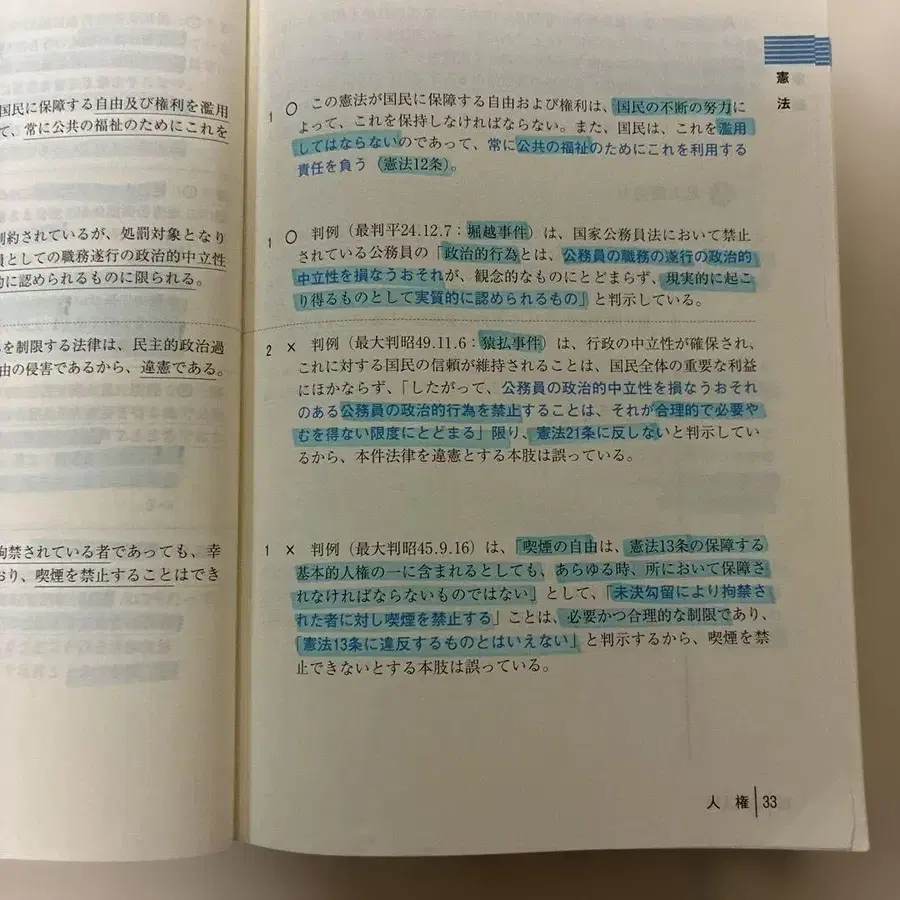 国民に保障する自由及び権利を濫用
て、常に公共の福祉のためにこれを
制約されているが、処罰対象となり
員としての職務遂行の政治的中立性
的に認められるものに限られる。
を制限する法律は、民主的政治過
由の侵害であるから、違憲である。
拘禁されている者であっても、幸
おり、喫煙を禁止することはでき
憲法
1 〇 この憲法が国民に保障する自由および権利は、国民の不断の努力に
よって、これを保持しなければならない。また、国民は、これを濫用
してはならないのであって、常に公共の福祉のためにこれを利用する
責任を負う（憲法12条）。
1 〇 判例（最判平24.12.7：堀越事件）は、国家公務員法において禁止
されている公務員の「政治的行為とは、公務員の職務の遂行の政治的
中立性を損なうおそれが、観念的なものにとどまらず、現実的に起こ
り得るものとして実質的に認められるもの」と判示している。
2 × 判例（最大判昭49.11.6：猿払事件）は、行政の中立性が確保され、
これに対する国民の信頼が維持されることは、国民全体の重要な利益
にほかならず、「したがって、公務員の政治的中立性を損なうおそれ
のある公務員の政治的行為を禁止することは、それが合理的で必要や
むを得ない限度にとどまる」限り、憲法21条に反しないと判示してい
るから、本件法律を違憲とする本肢は誤っている。
1 × 判例（最大判昭45.9.16）は、「喫煙の自由は、憲法13条の保障する
基本的人権の一に含まれるとしても、あらゆる時、所において保障さ
れなければならないものではない」として、「未決勾留により拘禁さ
れた者に対し喫煙を禁止する」ことは、必要かつ合理的な制限であり、
「憲法13条に違反するものとはいえない」と判示するから、喫煙を禁
止できないとする本肢は誤っている。
人権 33